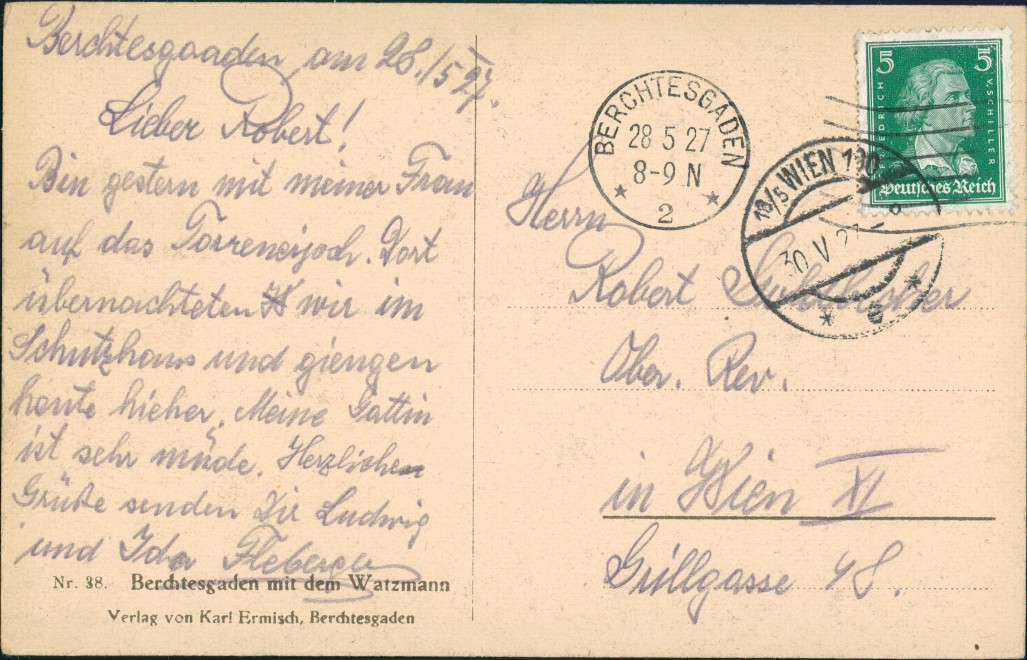 Berchtesgaden, am 28./5 27.
Lieber Robert!
Bin gestern mit meiner Frau
auf das Torrenerjoch. Dort
übernachteten wir im
Schutzhaus und giengen
heute hieher. Meine Gattin
ist sehr müde. Herzlichen
Grüße senden Dir Ludwig
und Ida
Nr. 38. Berchtesgaden mit dem Watzmann
Verlag von Karl Ermisch, Berchtesgaden
BERCHTESGADEN
28 5 27
8-9 N
* 2 *
5 5
FRIEDRICH V. SCHILLER
Deutsches Reich
18/5 WIEN 110
30 V 27
Herrn
Robert
Ober. Rev.
in Wien XI
Grillgasse 48.